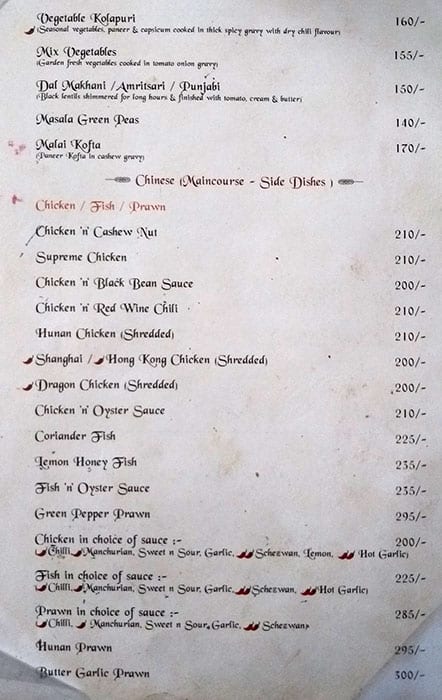 Vegetable Kolapuri 160/-
(Seasonal vegetables, paneer & capsicum cooked in thick spicy gravy with dry chili flavour)
Mix Vegetables 155/-
(Garden fresh vegetables cooked in tomato onion gravy)
Dal Makhani /Amritsari / Punjabi 150/-
(Black lentils shimmered for long hours & finished with tomato, cream & butter)
Masala Green Peas 140/-
Malai Kofta 170/-
(Paneer Kofta in cashew gravy)
Chinese (Maincourse - Side Dishes )
Chicken / Fish / Prawn
Chicken 'n' Cashew Nut 210/-
Supreme Chicken 210/-
Chicken 'n' Black Bean Sauce 200/-
Chicken 'n' Red Wine Chili 210/-
Hunan Chicken (Shredded) 210/-
Shanghai / Hong Kong Chicken (Shredded) 200/-
Dragon Chicken (Shredded) 200/-
Chicken 'n' Oyster Sauce 210/-
Coriander Fish 225/-
Lemon Honey Fish 235/-
Fish 'n' Oyster Sauce 235/-
Green Pepper Prawn 295/-
Chicken in choice of sauce :- 200/-
(Chilli, Manchurian, Sweet n Sour, Garlic, Schezwan, Lemon, Hot Garlic)
Fish in choice of sauce :- 225/-
(Chilli, Manchurian, Sweet n Sour, Garlic, Schezwan, Hot Garlic)
Prawn in choice of sauce :- 285/-
(Chilli, Manchurian, Sweet n Sour, Garlic, Schezwan)
Hunan Prawn 295/-
Butter Garlic Prawn 300/-